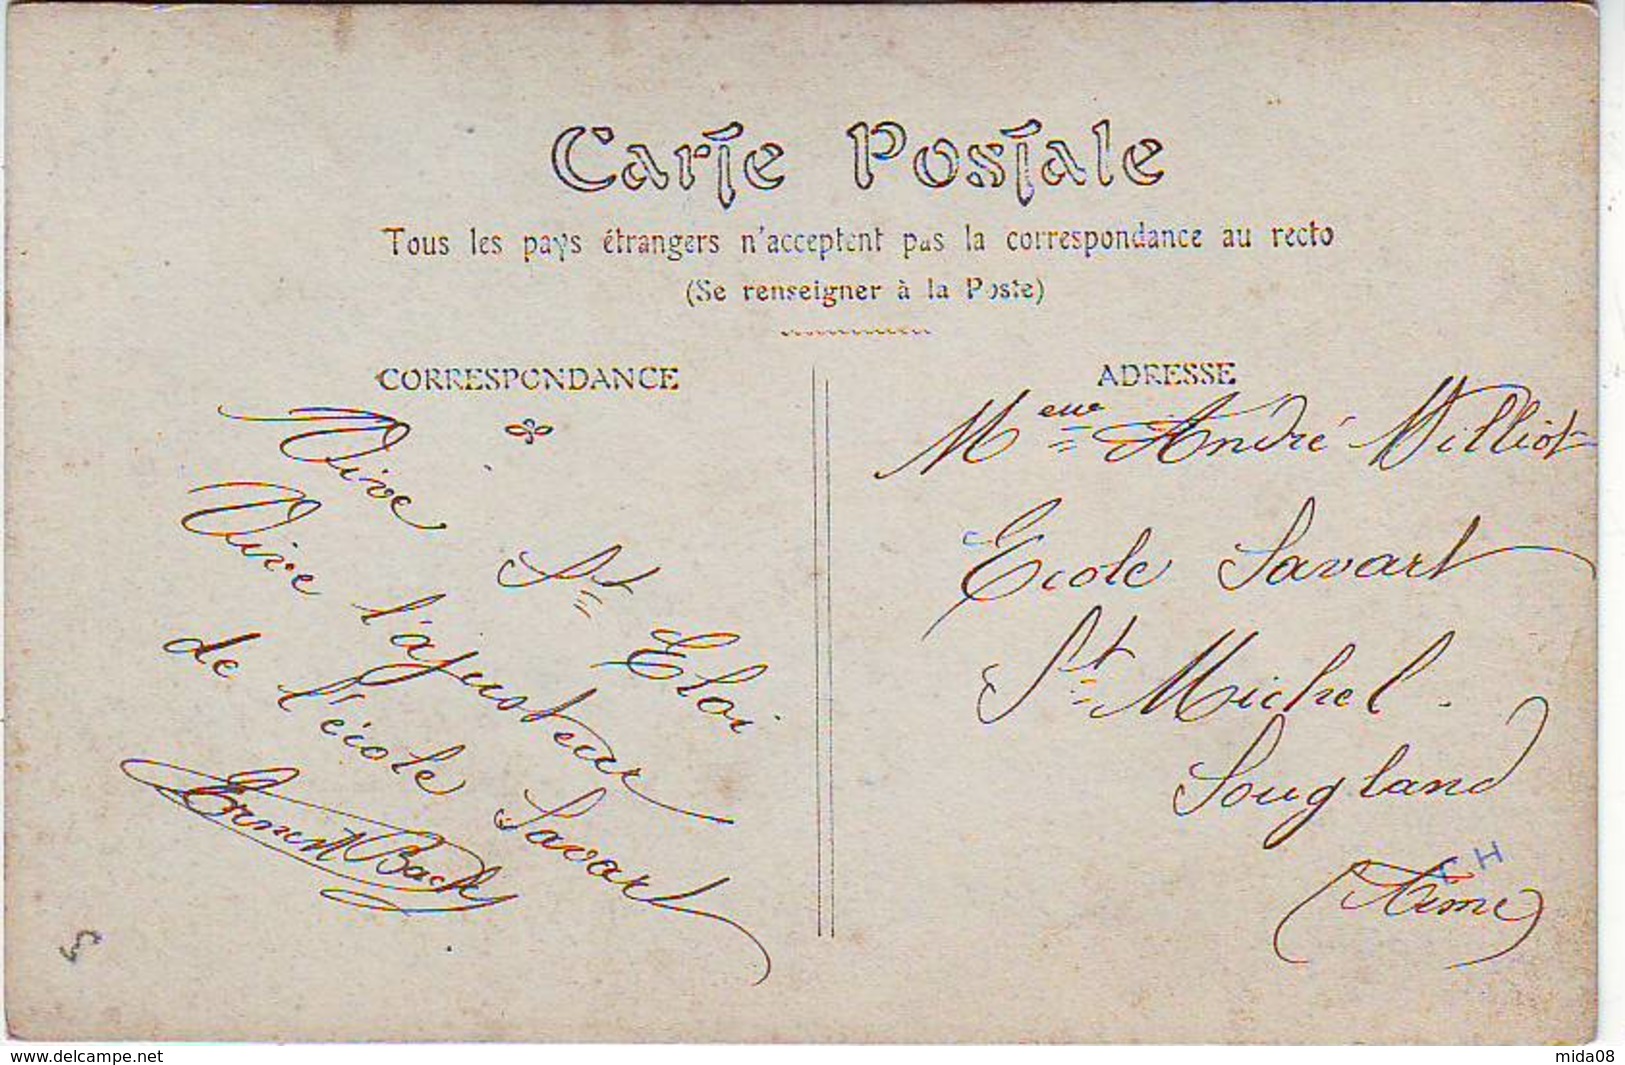 Carte Postale
Tous les pays étrangers n'acceptent pas la correspondance au recto
(Se renseigner à la Poste)
CORRESPONDANCE
Vive St Eloi
Vive l'ajusteur
de l'école Savart
Ernest Back
5
ADRESSE
Meur André Williot
Ecole Savart
St Michel.
Sougland
(Aisne)
CH
www.delcampe.net
mida08